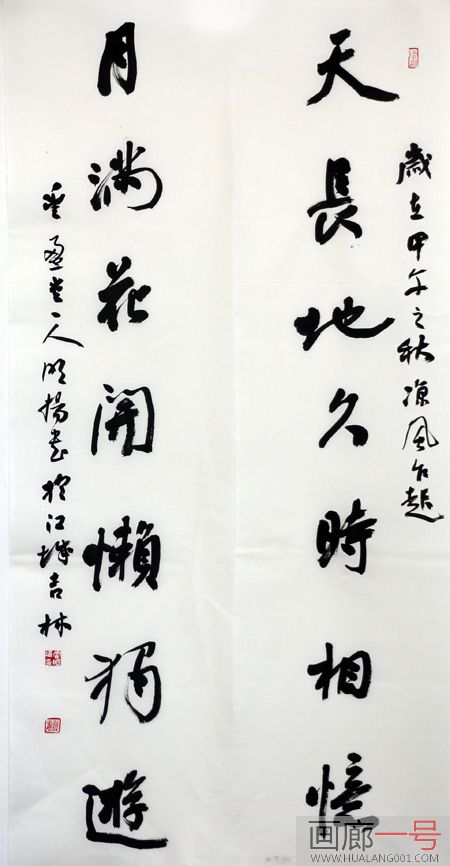 歲在甲午之秋涼風乍起
天長地久時相憶
月滿花開懶獨遊
盈堂一人明揚書於江城吉林
画廊一号
WWW.HUALANG001.COM